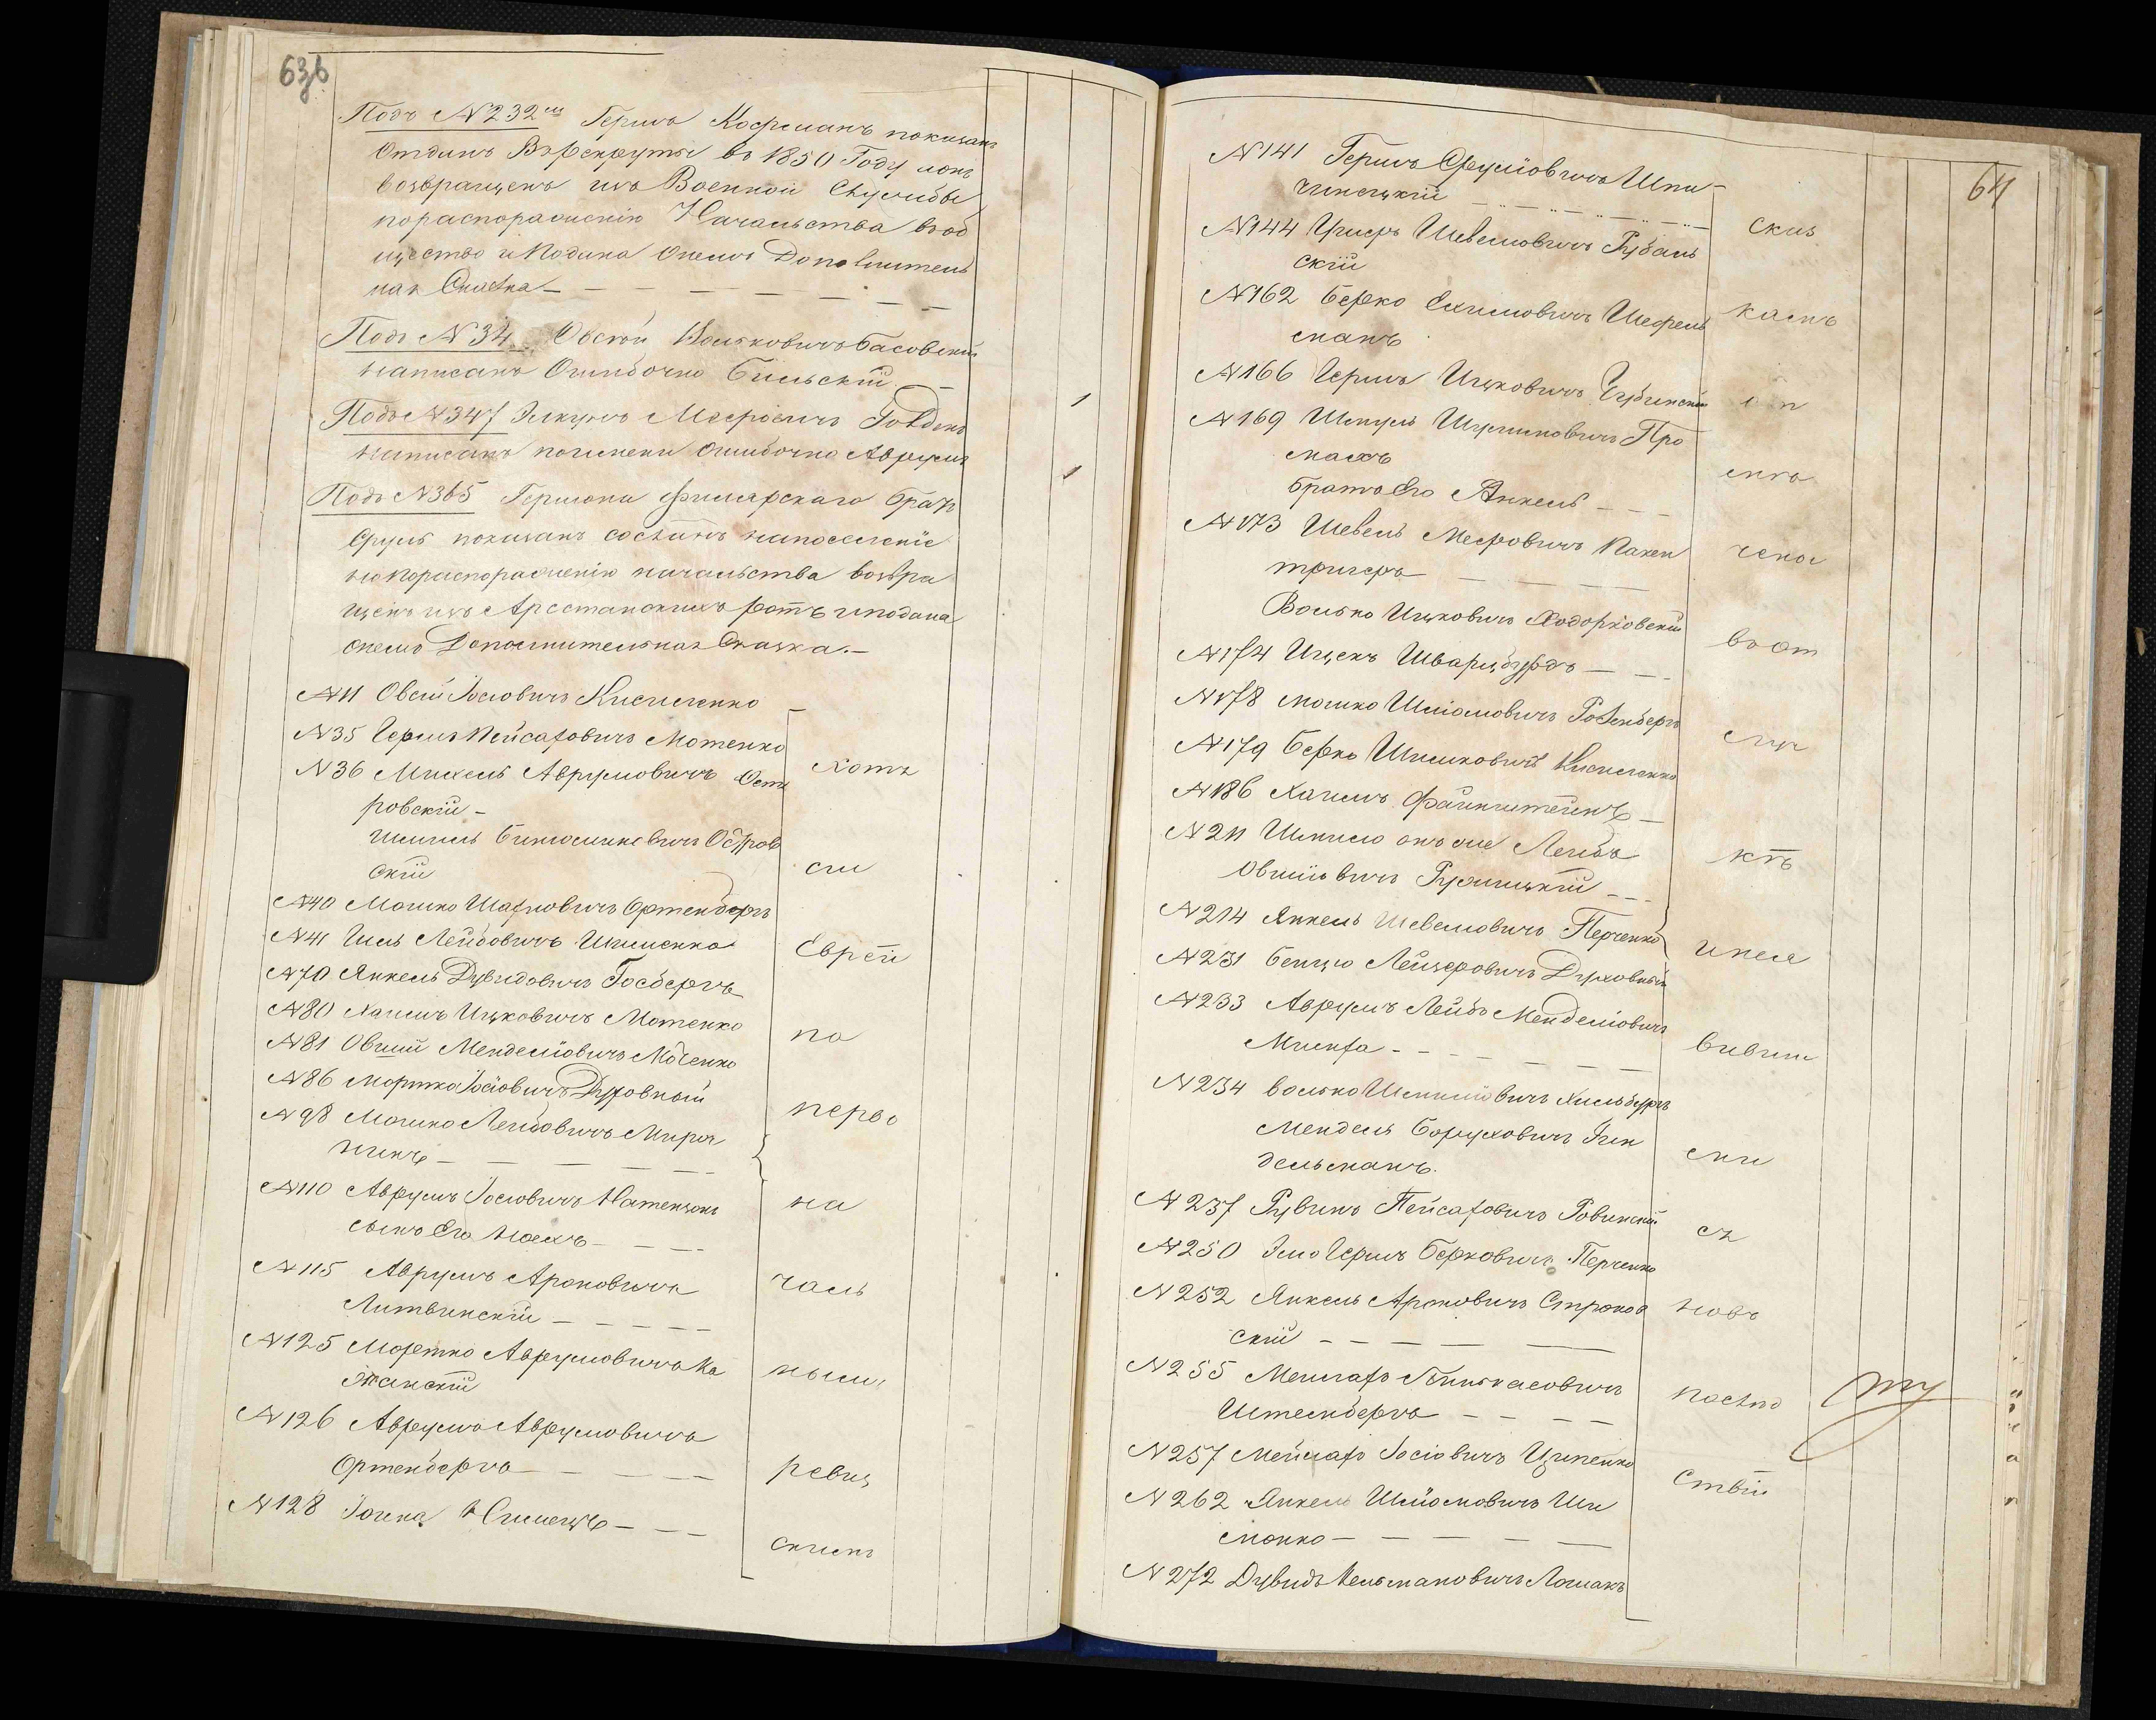 63б
Подъ №232мъ Гершъ Кофманъ показанъ
Отданъ Врекруты въ 1850 Году нонъ
возвращенъ изъ Военной Службы
пораспоражению Начальства вооб
щество и Подана Онемъ Дополнитель
ная Сказка
Подъ №34 Овсѣй Вольковичъ Басовский
написанъ Ошибочно Бильский
Подъ №347 Элкунъ Меєровичъ Говденъ
написанъ поимени ошибочно Аврумъ
Подъ №365 Гершона Фишарскаго братъ
Сруль показанъ сосланъ напоселение
но пораспоражению начальства возвра
щенъ изъ Арестанскихъ ротъ иподана
онемъ Дополнительная Сказка.
№11 Овсѣй Іосіовичъ Кисиленко
№35 Гершъ Пейсаховичъ Мотенко
№36 Михель Аврумовичъ Ост
ровский
Шмиль Биньоминовичъ Остров
ский
№40 Мошко Шаулович Ортенбергъ
№41 Гиль Лейбовичъ Шименко
№70 Янкель Дувидовичъ Госбергъ
№80 Хаимъ Ицковичъ Мотенко
№81 Овший Менделіовичъ Моченко
№86 Мортко Іосіовичъ Духовный
№98 Мошко Лейбовичъ Мироч
никъ
№110 Аврумъ Іосіовичъ Натензонъ
сынъ Его Ноехъ
№115 Аврумъ Ароновичъ
Литвинский
№125 Мортко Аврумовичъ Ка
жанский
№126 Аврумъ Аврумовичъ
Ортенбергъ
№128 Іоина Нимецъ
хотя
сіи
Еврѣи
по
перво
на
чаль
нымъ
ревиз
скимъ
64
№141 Гершъ Сруліовичъ Шпи
чинецкій
№144 Фишеръ Шевеліовичъ Рубань
скій
№162 Берко Ехиліовичъ Шефель
манъ
№166 Гершъ Ицковичъ Чубинский
№169 Шмуль Шулимовичъ Про
махъ
братъ Его Янкель
№173 Шевель Меєровичъ Пакен
тригеръ
Волько Ицковичъ Ходорковский
№174 Ицекъ Шварцбурдъ
№178 Мошко Шліомовичъ Розенбергъ
№179 Берко Шимковичъ Кисиленко
№186 Хаимъ Файнштейнъ
№211 Шмило онъ же Лейбъ
Овшіиовичъ Ружицкий
№214 Янкель Шевеліовичъ Перченко
№231 Бенцю Лейзеровичъ Духовный
№233 Аврумъ Лейбъ Менделіовичъ
Минфа
№234 Волько Шмиліовичъ Хильбургъ
Мендель Боруховичъ Фин
дельманъ.
№237 Рувинъ Пейсаховичъ Ровинский
№250 Эліо Гершъ Берковичъ Перченко
№252 Янкель Ароновичъ Строков
скій
№255 Меилахъ Пинкасовичъ
Штемберъ
№257 Мейлахъ Іосіовичъ Ципенко
№262 Янкель Шліомовичъ Ши
монко
№272 Дувидъ Кельмановичъ Лошакъ
сказ
камъ
и п
мѣ
чены
въ от
луч
кѣ
инея
вивши
ми
ся
новъ
послѣд
ствіи